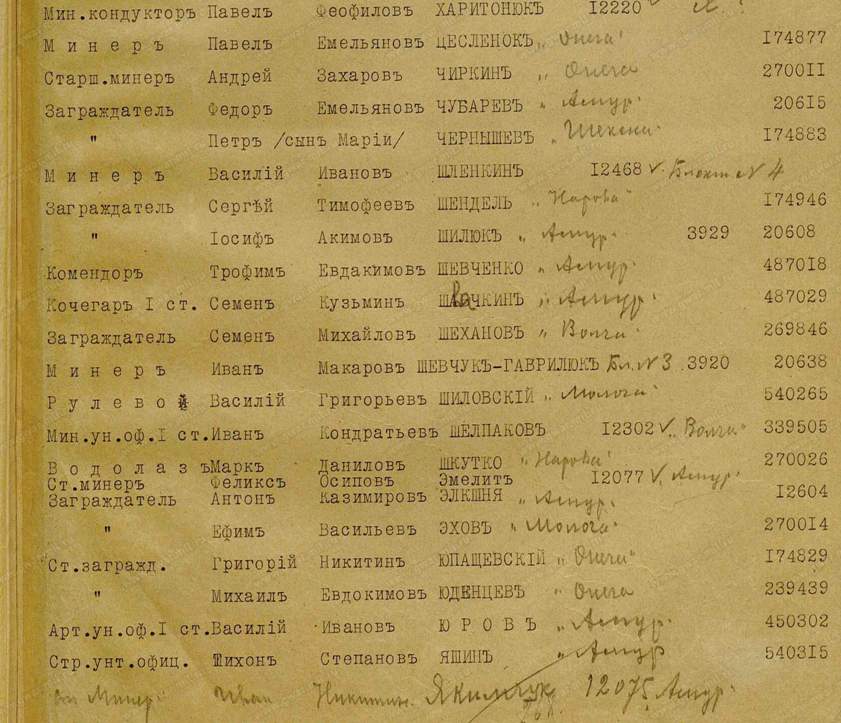 Мин.кондукторъ Павелъ Феофиловъ ХАРИТОНЮКЪ I2220 ѵ
Минеръ Павелъ Емельяновъ ЦЕСЛЕНОКЪ „Онега" I74877
Старш.минеръ Андрей Захаровъ ЧИРКИНЪ „ Онега 2700II
Заградждатель Федоръ Емельяновъ ЧУБАРЕВЪ „ Амур. 206I5
" Петръ /сынъ Маріи/ ЧЕРНЫШЕВЪ „Шексна" I74883
Минеръ Василій Ивановъ ШЛЕНКИНЪ I2468 ѵ. Блокш. №4
Заграждатель Сергѣй Тимофеевъ ШЕНДЕЛЬ „Нарова" I74946
" Іосифъ Акимовъ ШИЛЮКЪ „ Амур. 3929 20608
Комендоръ Трофимъ Евдакимовъ ШЕВЧЕНКО „ Амур. 4870I8
Кочегаръ I ст. Семенъ Кузьминъ „ Амур. 487029
Заграждатель Семенъ Михайловъ ШЕХАНОВЪ „ Волга" 269846
Минеръ Иванъ Макаровъ ШЕВЧУКЪ-ГАВРИЛЮКЪ Бл. №3 3920 20638
Рулевой Василій Григорьевъ ШИЛОВСКІЙ „ Молога" 540265
Мин.ун.оф.I ст.Иванъ Кондратьевъ ШЕЛПАКОВЪ I2302 ѵ „Волга" 339505
Водолазъ Маркъ Даниловъ ШКУТКО „Нарова" 270026
Ст.минеръ Феликсъ Осиповъ Эмелитъ I2077 ѵ. Амур"
Заграждатель Антонъ Казимировъ ЭЛКШНЯ „ Амур. I2604
" Ефимъ Васильевъ ЭХОВЪ „ Молога" 2700I4
Ст.загражд. Григорій Никитинъ ЮПАЩЕВСКІЙ „Онега" I74829
" Михаилъ Евдокимовъ ЮДЕНЦЕВЪ „ Онега 239439
Арт.ун.оф.I ст.Василій Ивановъ ЮРОВЪ „Амур. 450302
Стр.унт.офиц. Тихонъ Степановъ ЯШИНЪ „Амур 5403I5
Минер Иван Никитин. Якимчук 12075 Амур.